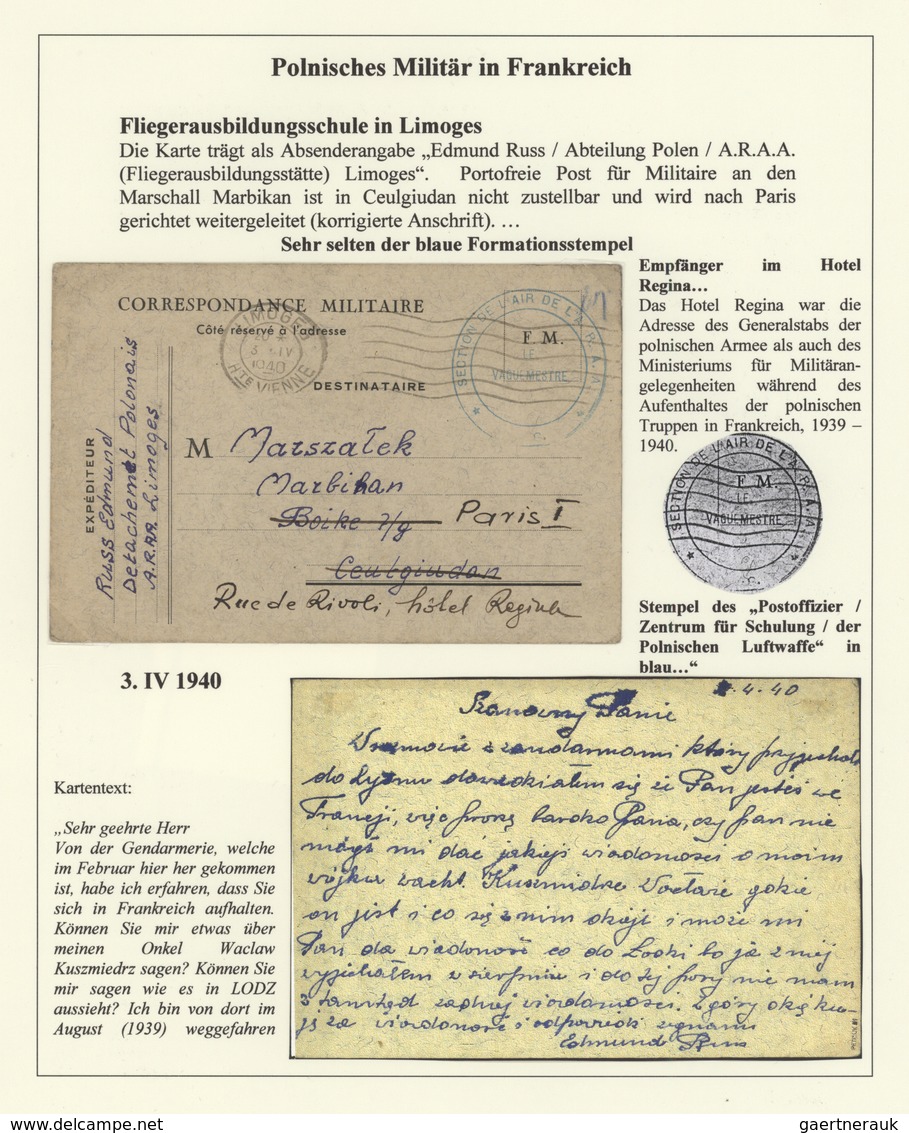 Polnisches Militär in Frankreich
Fliegerausbildungsschule in Limoges
Die Karte trägt als Absenderangabe „Edmund Russ / Abteilung Polen / A.R.A.A.
(Fliegerausbildungsstätte) Limoges“. Portofreie Post für Militaire an den
Marschall Marbikan ist in Ceulgiudan nicht zustellbar und wird nach Paris
gerichtet weitergeleitet (korrigierte Anschrift). …
Sehr selten der blaue Formationsstempel
CORRESPONDANCE MILITAIRE
Côté réservé à l'adresse
LIMOGES
3 IV
1940
Hte VIENNE
SECTION DE L'AIR DE LA R.A.A.
F. M.
LE
VAGUEMESTRE
DESTINATAIRE
EXPÉDITEUR
Russ Edmund
Detachemet Polonais
A.R.A.A. Limoges
M Marszałek
Marbikan
Boike 7/g Paris I
Ceulgiudan
Rue de Rivoli, hôtel Regina
Empfänger im Hotel
Regina…
Das Hotel Regina war die
Adresse des Generalstabs der
polnischen Armee als auch des
Ministeriums für Militäran-
gelegenheiten während des
Aufenthaltes der polnischen
Truppen in Frankreich, 1939 –
1940.
SECTION DE L'AIR DE LA R.A.A.
F. M.
LE
VAGUEMESTRE
Stempel des „Postoffizier /
Zentrum für Schulung / der
Polnischen Luftwaffe“ in
blau…“
3. IV 1940
Kartentext:
„Sehr geehrte Herr
Von der Gendarmerie, welche
im Februar hier her gekommen
ist, habe ich erfahren, dass Sie
sich in Frankreich aufhalten.
Können Sie mir etwas über
meinen Onkel Waclaw
Kuszmiedrz sagen? Können Sie
mir sagen wie es in LODZ
aussieht? Ich bin von dort im
August (1939) weggefahren
.4.40
Szanowny Panie
z żandarmami który przyjechali
do dowiedziałem się że Pan jesteś we
Francji, więc proszę bardzo Pana, czy pan nie
mi dać jakiejś wiadomości o moim
wujku gdzie
on jest i co się z nim dzieje i może mi
Pan da wiadomość co do Łodzi bo ja z niej
wyjechałem w sierpniu i do tej pory nie mam
stamtąd żadnej wiadomości. Z góry
ję za wiadomość i odpowiedź
Edmund Russ
gaertnerauk